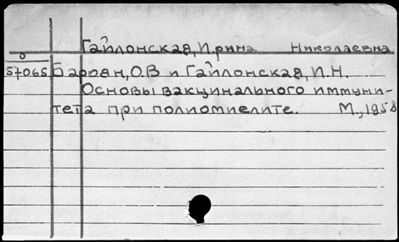 Гайлонская, Ирина Николаевна
0
57065 Бароян, О.В и Гайлонская, И.Н.
Основы вакцинального иммуни-
тета при полиомиелите. М., 1958